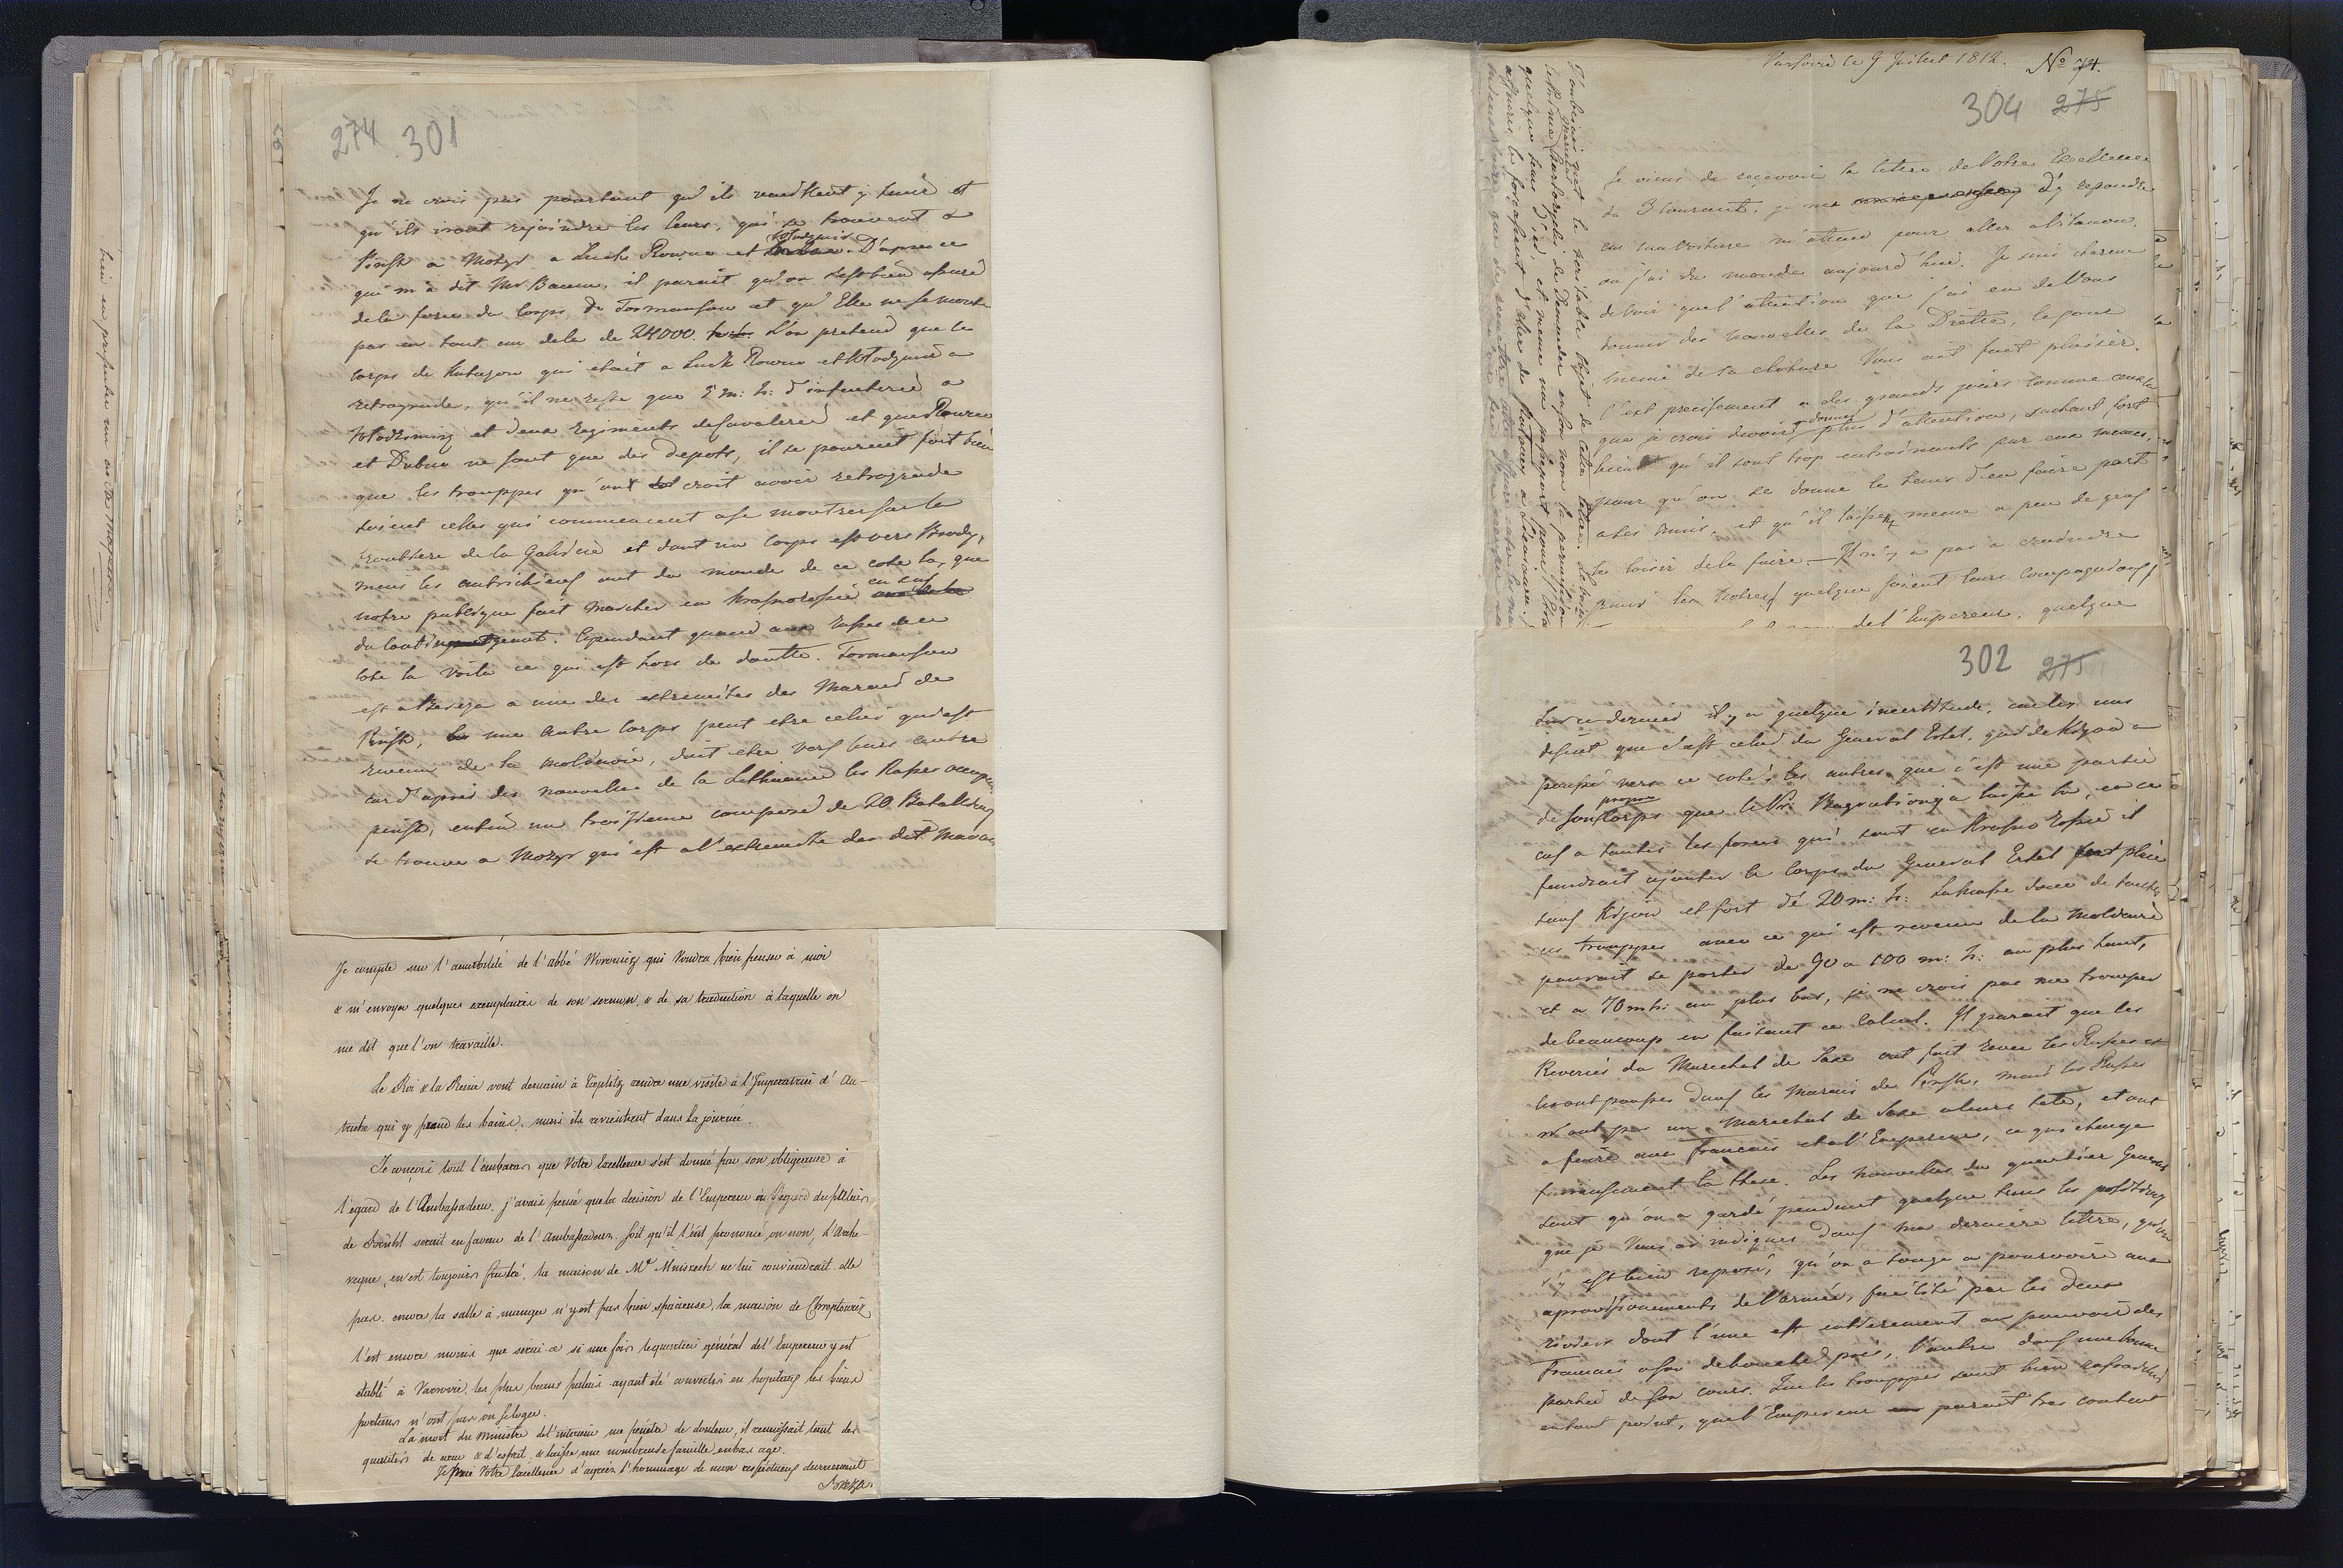 274 301
Je ne crois pas pourtant qu'ils veuillent y tenir et
qu'ils iront rejoindre les leurs, qui se trouvent a
Wlodzimir
Pinsk a Mozyr a Luck Rowno et Dubno. D'apres ce
que m'a dit Mr Baum, il parait qu'on s'est bien assuré
de la force du corps de Tormansow et qu'Elle ne se monte
pas en tout au dela de 24000. h: L'on pretend que le
corps de Kutuzow qui etait a Luck Rowno et Wlodzimir a
retrograde, qu'il ne reste que 2 m: h: d'infanterie a
Wlodzimirz et deux regiments de Cavalerie et que Rowno
et Dubno ne sont que des depots, il se pourrait fort bien
que les trouppes qu'ont croit avoir retrograde
soient celles qui commencent a se montrer sur la
frontiere de la Galicie et dont un corps est vers Brody,
mais les autrichiens ont du monde de ce cote la, que
en cas
notre publique fait marcher en Krasnorossie
du contingent. Cependant quand aux Russes de ce
cote la voila ce qui est hors de doutte. Tormansow
est a Bereza a une des extremites des Marais de
Pinsk, une autre corps peut etre celui qui est
revenu de la Moldavie, doit etre vers leur centre
car d'apres des nouvelles de la Lithuanie les Russes occupent
pinsk, enfin un troisieme composé de 20 Bataillons
se trouve a Mozyr qui est a l'extremite des dit Marais
Je compte sur l'amabilité de l'abbé Woronicz qui voudra bien penser à moi
& m'envoyer quelques exemplaires de son sermon & de sa traduction à laquelle on
me dit que l'on travaille.
Le Roi & la Reine vont demain à Toeplitz rendre une visite à l'Imperatrice d'Au-
triche qui y prend les bains, mais ils reviendront dans la journée.
Je conçois tout l'embarras que Votre Excellence s'est donné par son obligeance à
l'egard de l'Ambassadeur. j'avais pensé que la decision de l'Empereur à l'égard du palais
de Brühl serait en faveur de l'Ambassadeur. soit qu'il l'eût prononcé, ou non, L'Arche-
veque, en est toujours frustré, la maison de Mr Mniszech ne lui conviendrait elle
pas. encore la salle à manger n'y est pas bien spacieuse, la maison de Chreptowicz
l'est encore moins que serai-ce si une fois le quartier général de l'Empereur y est
etabli à Varsovie, les plus beaux palais ayant été convertis en hopitaux les biens
portans n'ont pas où se loger.
La mort du ministre de l'interieur me penètre de douleur, il reunissait tant de
qualités de coeur & d'esprit, & laisse une nombreuse famille en bas age.
Je prie Votre Excellence d'agréer l'hommage de mon respectueux devouement
Breza.
bien en presenter un au Majesté.
Varsovie le 9 Juillet 1812. No 74.
304 275
Je viens de reçevoir la lettre de Votre Excellence
du 3 Courant, je me d'y repondre
car ma voiture m'attend pour aller a Wilanow,
ou j'ai du monde aujourd'hui. Je suis charmé
de voir que l'attention que j'ai eu de Vous
donner des nouvelles de la Diette, le jour
meme de sa cloture Vous ait fait plaisir.
C'est precisement a des grands jours comme ceux la
donner
que je crois devoir plus d'attention, sachant fort
bien qu'il sont trop entrainants par eux memes,
pour qu'on se donne le tems d'en faire part
a ses amis, et qu'il laissent meme a peu de gens
le loisir de le faire. — Il n'y a pas a craindre
pour les Notres quelque soient leurs compagnons,
de l'Empereur, quelque
302 275
Sur ce dernier il y a quelque incertitude, car les uns
disent que c'est celui du General Ertel, qui de Kijow a
passé vers ce coté, les autres que c'est une partie
propre
de son corps que le Pr: Bagrationg a laissé la, en ce
cas a toutes les forces qui sont en Krasno Rossie il
faudrait ajouter le corps du General Ertel placé
sous Kijow et fort de 20 m: h: La masse donc de toutes
ces trouppes avec ce qui est revenu de la Moldavie
pourrait se porter de 90 a 100 m: h: au plus haut,
et a 70 m h: au plus bas, je ne crois pas me tromper
de beaucoup en faisant ce calcul. Il parait que les
Reveries du Marechal de Saxe ont fait rever les Russes et
les ont poussés dans les Marais de Pinsk, mais les Russes
n'ont pas un Marechal de Saxe a leurs tete, et ont
a faire aux francais et a l'Empereur, ce qui change
furieusement la these. Les nouvelles du quartier General
sont qu'on a gardé pendant quelque tems les positions
que je Vous ai indiqués dans ma derniere lettre, qu'on
s'y est bien reposé, qu'on a songé a pourvoire aux
aprovisionements de l'armée, facilité par les deux
rivieres dont l'une est entierement au pouvoir des
Francais a son debouché prés, l'autre dans une bonne
partie de son cours. Que les trouppes sont bien rafraichis
en tout point, que l'Empereur parait tres content